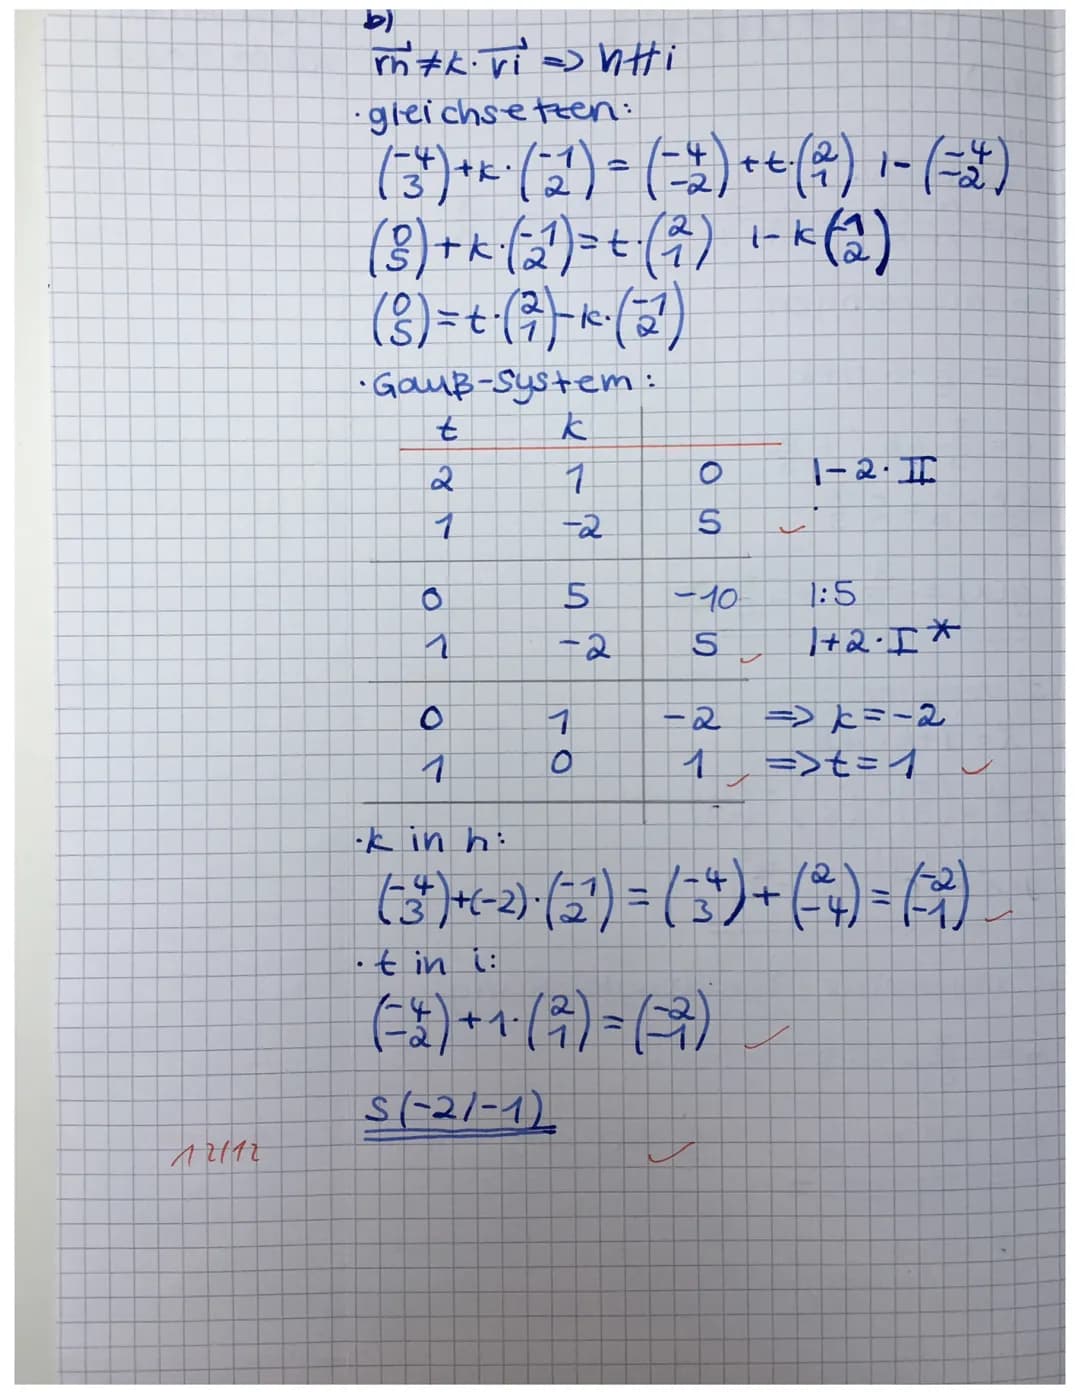 b)
$\vec{rh} \neq k \cdot \vec{ri} \Rightarrow h \nparallel i$
· gleichsetzen:
$\binom{-4}{3} + k \cdot \binom{-1}{2} = \binom{-4}{-2} + t \cdot \binom{2}{1} \quad | - \binom{-4}{-2}$
$\binom{0}{5} + k \cdot \binom{-1}{2} = t \cdot \binom{2}{1} \quad | - k \binom{-1}{2}$
$\binom{0}{5} = t \cdot \binom{2}{1} - k \cdot \binom{-1}{2}$
· Gauß-System:
t k
2 1 0 |-2·II
1 -2 5 ✓
0 5 -10 |:5
1 -2 5 ✓ |+2·I*
0 1 -2 => k=-2
1 0 1 ✓ => t=1 ✓
· k in h:
$\binom{-4}{3} + (-2) \cdot \binom{-1}{2} = \binom{-4}{3} + \binom{2}{-4} = \binom{-2}{-1}$ ✓
· t in i:
$\binom{-4}{-2} + 1 \cdot \binom{2}{1} = \binom{-2}{-1}$ ✓
S(-2/-1)
12/12 ✓